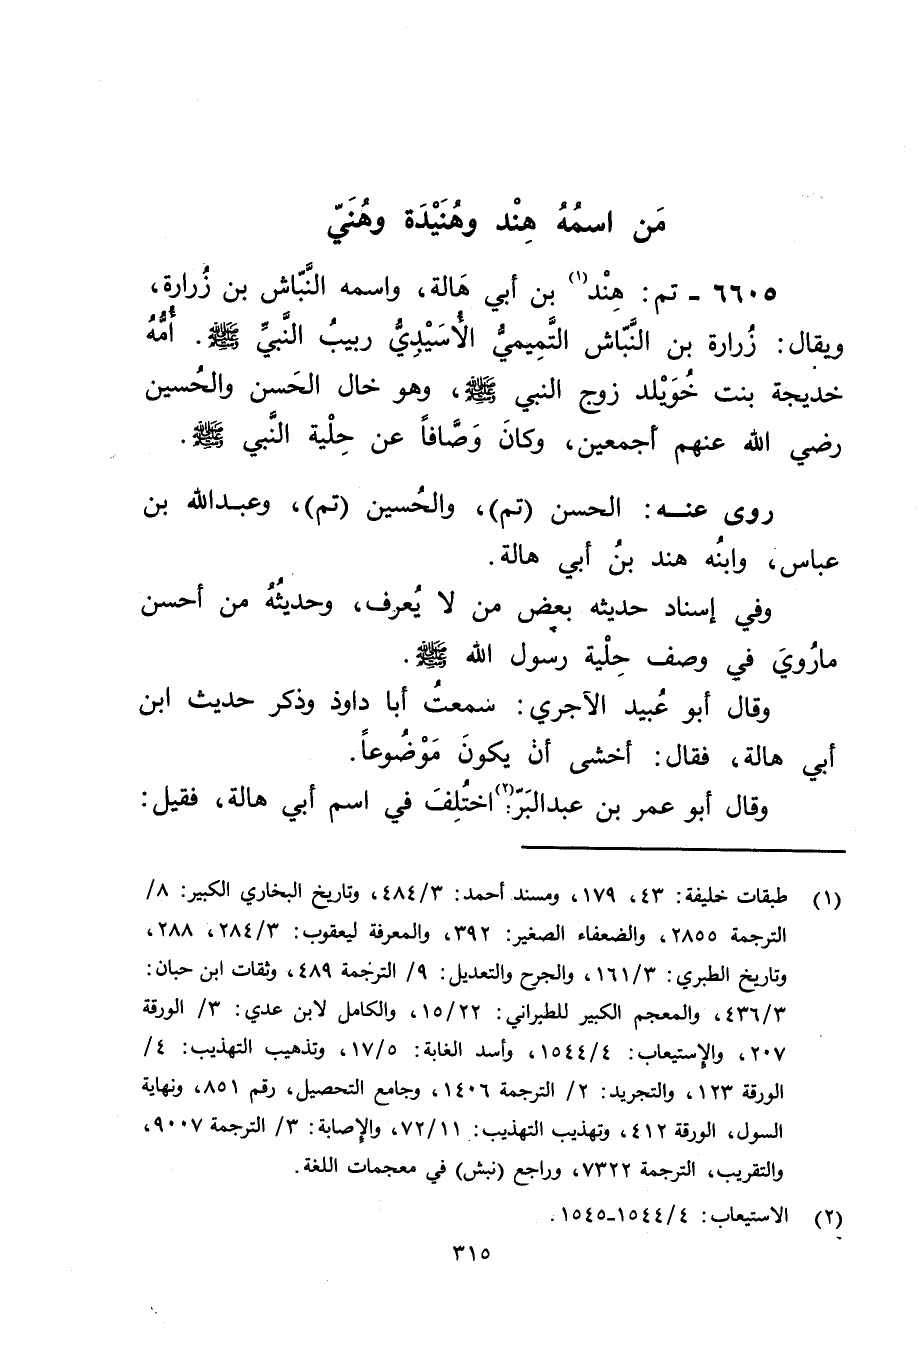 مَن اسمُهُ هِنْد وهُنَيْدَة وهُنَيّ
٦٦٠٥ ـ تم: هِنْد(١) بن أبي هَالة، واسمه النَّبّاش بن زُرارة،
ويقال: زُرارة بن النَّبّاش التَّمِيميُّ الأُسَيْدِيُّ ربيبُ النَّبيِّ ﷺ. أُمُّهُ
خديجة بنت خُوَيْلد زوج النبي ﷺ، وهو خال الحَسن والحُسين
رضي الله عنهم أجمعين، وكانَ وَصَّافاً عن حِلْية النَّبي ﷺ.
روى عنـه: الحسن (تم)، والحُسين (تم)، وعبـدالله بن
عباس، وابنُه هند بنُ أبي هالة.
وفي إسناد حديثه بعض من لا يُعرف، وحديثُهُ من أحسن
مارُويَ في وصف حِلْية رسول الله ﷺ.
وقال أبو عُبيد الآجري: سَمعتُ أبا داوذ وذكر حديث ابن
أبي هالة، فقال: أخشى أنْ يكونَ مَوْضُوعاً.
وقال أبو عمر بن عبدالبَرّ(٢): اختُلِفَ في اسم أبي هالة، فقيل:
(١) طبقات خليفة: ٤٣، ١٧٩، ومسند أحمد: ٤٨٤/٣، وتاريخ البخاري الكبير: ٨/
الترجمة ٢٨٥٥، والضعفاء الصغير: ٣٩٢، والمعرفة ليعقوب: ٢٨٤/٣، ٢٨٨،
وتاريخ الطبري: ١٦١/٣، والجرح والتعديل: ٩/ الترجمة ٤٨٩، وثقات ابن حبان:
٤٣٦/٣، والمعجم الكبير للطبراني: ١٥/٢٢، والكامل لابن عدي: ٣/ الورقة
٢٠٧، والإستيعاب: ١٥٤٤/٤، وأسد الغابة: ١٧/٥، وتذهيب التهذيب: ٤/
الورقة ١٢٣، والتجريد: ٢/ الترجمة ١٤٠٦، وجامع التحصيل، رقم ٨٥١، ونهاية
السول، الورقة ٤١٢، وتهذيب التهذيب: ٧٢/١١، والإصابة: ٣/ الترجمة ٩٠٠٧،
والتقريب، الترجمة ٧٣٢٢، وراجع (نبش) في معجمات اللغة.
(٢) الاستيعاب: ١٥٤٤/٤ـ١٥٤٥.
٣١٥